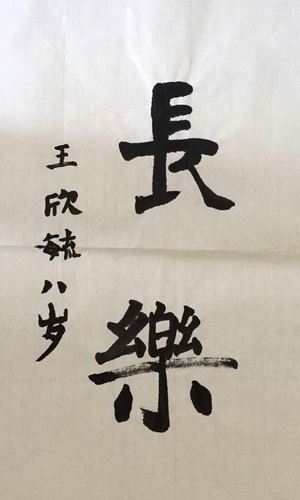 長樂
王欣毓八岁